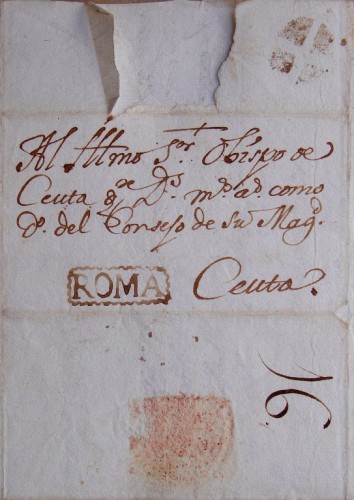 Al Illmo Sor. Obispo de
Ceuta gde Ds. ms. as. como
Do. del Consejo de Su Magd.
ROMA Ceuta.